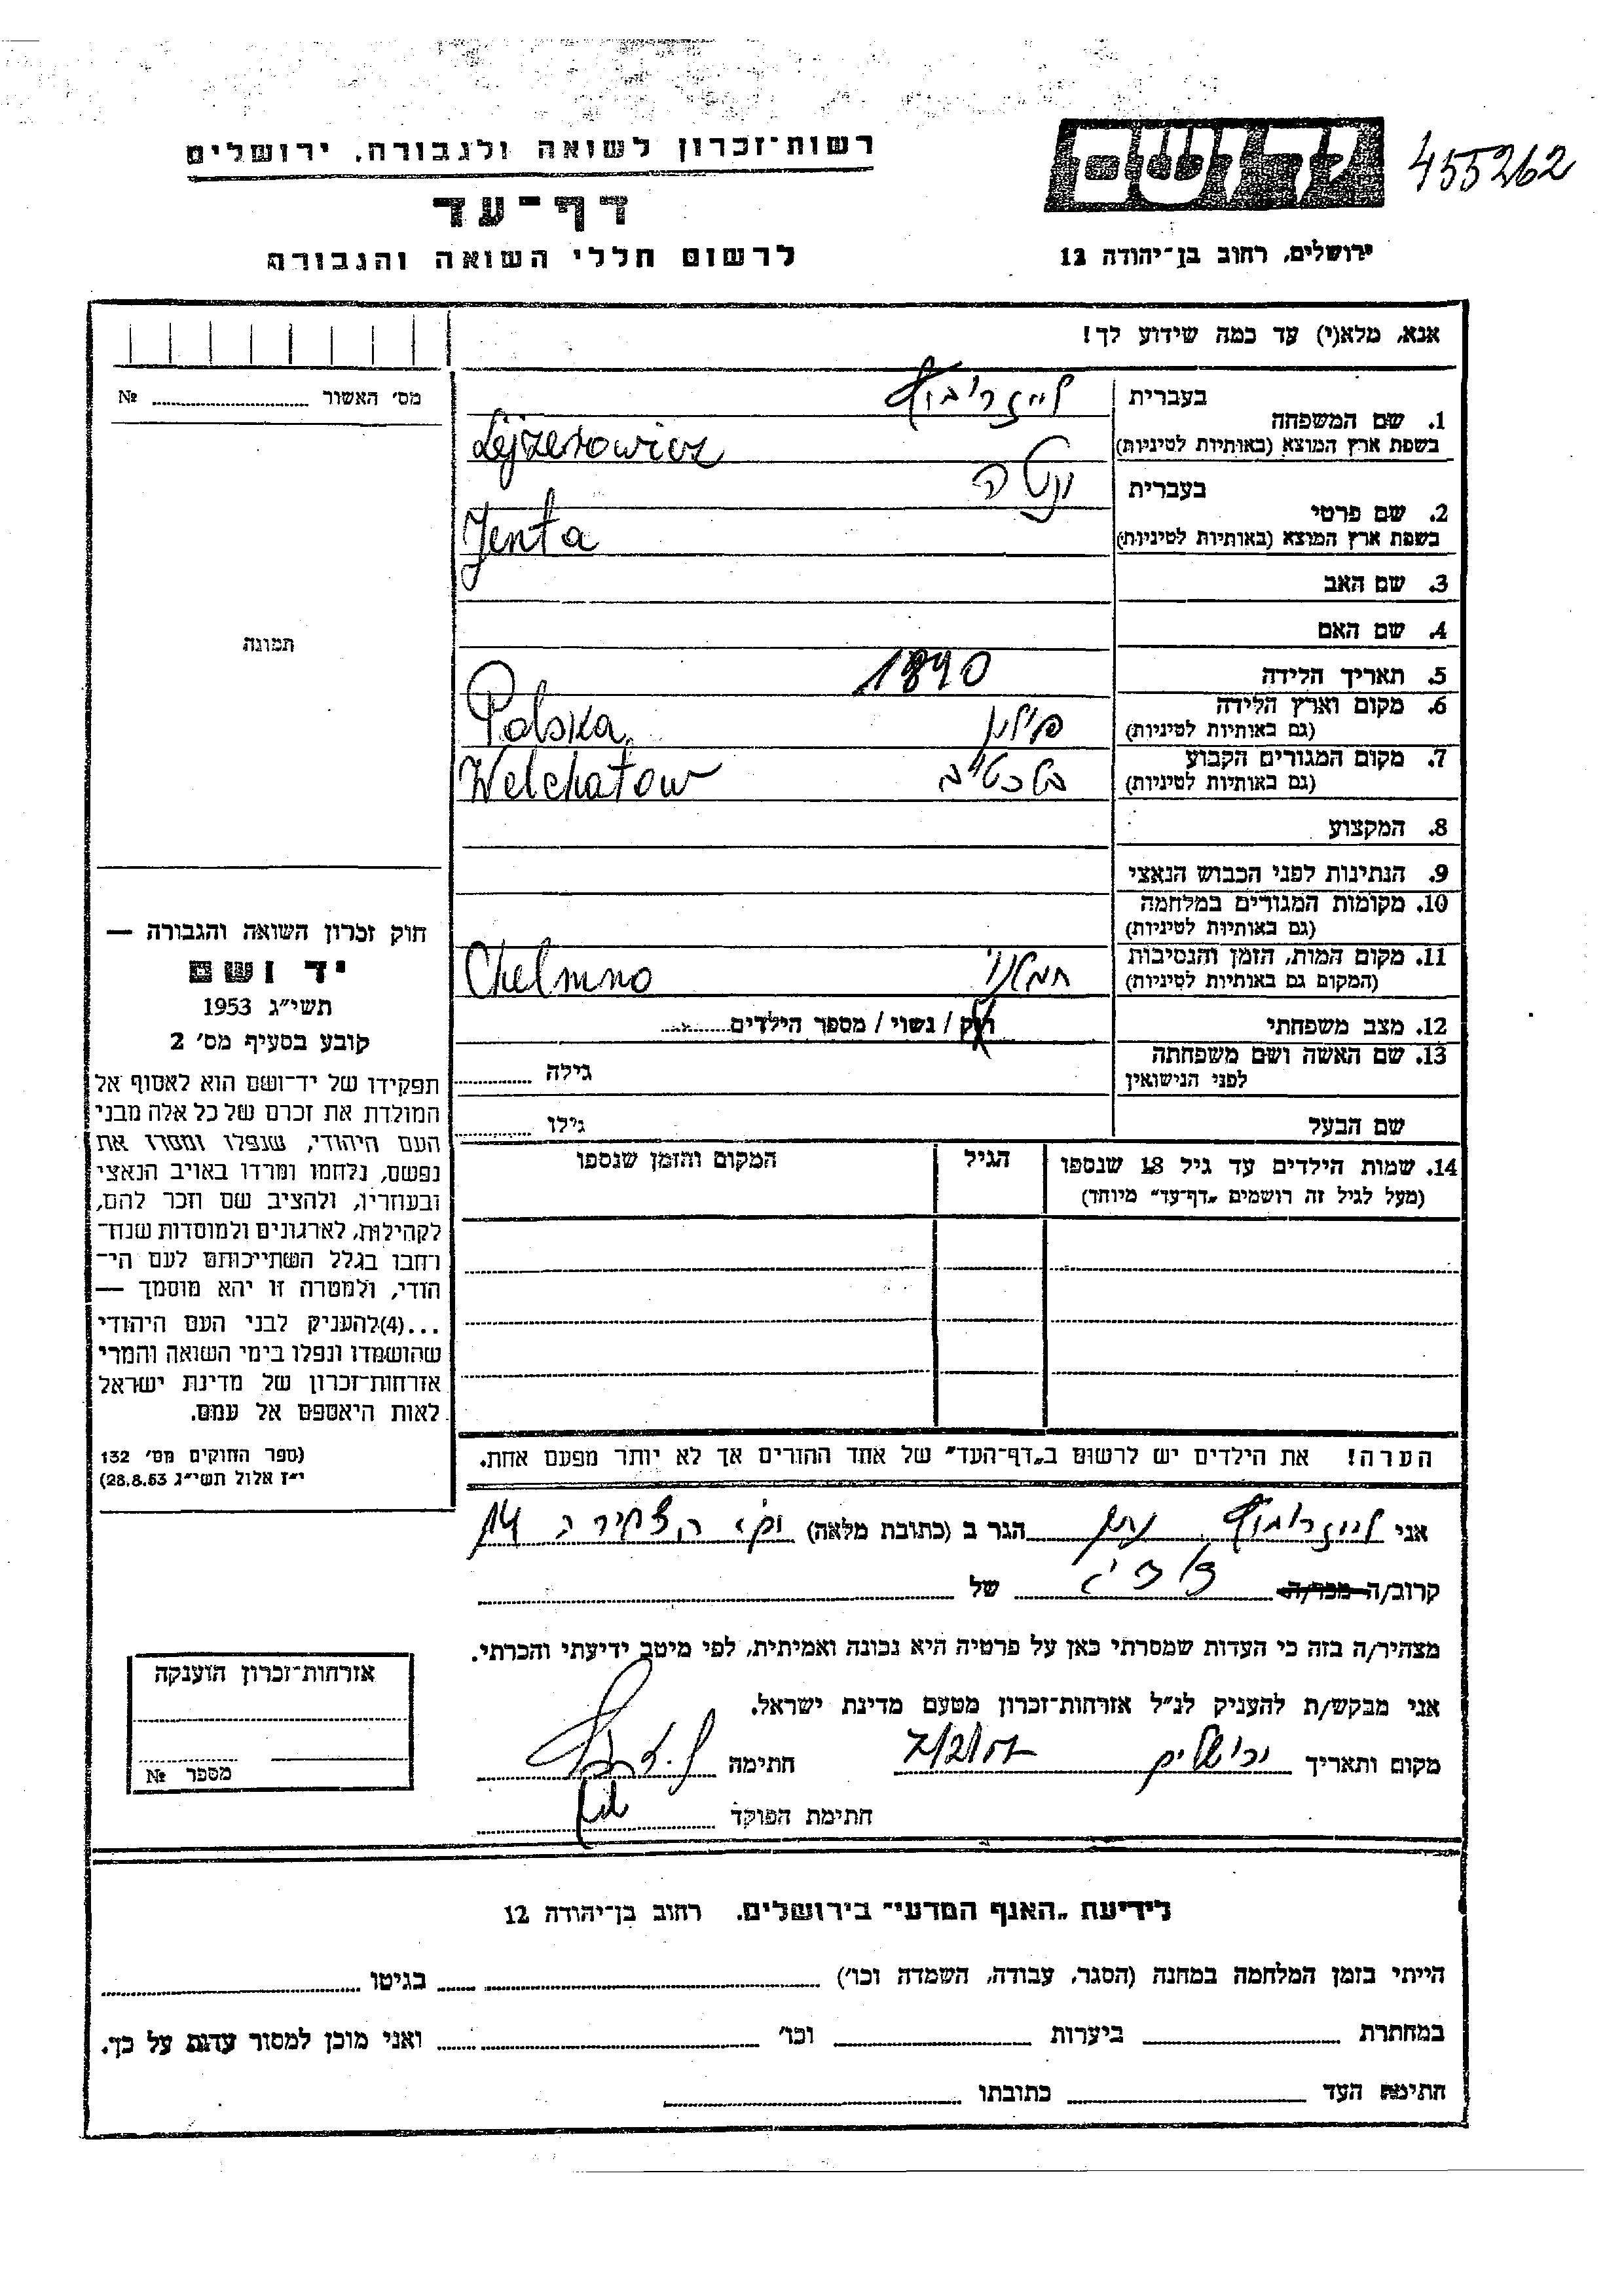 רשות־זכרון לשואה ולגבורה, ירושלים
דף־עד
לרשום חללי השואה והגבורה
יד ושם
455262
ירושלים, רחוב בן־יהודה 12
אנא, מלא(י) עד כמה שידוע לך!
מס׳ האשור № ........
תמונה
1. שם המשפחה בעברית לייזרוביץ
בשפת ארץ המוצא (באותיות לטיניות) Lejzerowicz
2. שם פרטי בעברית ינטה
בשפת ארץ המוצא (באותיות לטיניות) Jenta
3. שם האב
4. שם האם
5. תאריך הלידה 1890
6. מקום וארץ הלידה פולין
(גם באותיות לטיניות) Polska
7. מקום המגורים הקבוע
(גם באותיות לטיניות) Welchatow
8. המקצוע
9. הנתינות לפני הכבוש הנאצי
10. מקומות המגורים במלחמה
(גם באותיות לטיניות)
11. מקום המות, הזמן והנסיבות חמלנו
(המקום גם באותיות לטיניות) Chelmno
12. מצב משפחתי רוק / נשוי / מספר הילדים........
13. שם האשה ושם משפחתה גילה ........
לפני הנישואין
שם הבעל גילו ........
14. שמות הילדים עד גיל 18 שנספו הגיל המקום והזמן שנספו
(מעל לגיל זה רושמים „דף־עד” מיוחד)
הערה! את הילדים יש לרשום ב„דף־העד” של אחד ההורים אך לא יותר מפעם אחת.
חוק זכרון השואה והגבורה —
יד ושם
תשי״ג 1953
קובע בסעיף מס׳ 2
תפקידו של יד־ושם הוא לאסוף אל
המולדת את זכרם של כל אלה מבני
העם היהודי, שנפלו ומסרו את
נפשם, נלחמו ומרדו באויב הנאצי
ובעוזריו, ולהציב שם וזכר להם,
לקהילות, לארגונים ולמוסדות שנח־
רחבו בגלל השתייכותם לעם הי־
הודי, ולמטרה זו יהא מוסמך —
...(4)להעניק לבני העם היהודי
שהושמדו ונפלו בימי השואה והמרי
אזרחות־זכרון של מדינת ישראל
לאות היאספם אל עמם.
(ספר החוקים מס׳ 132
י״ז אלול תשי״ג 28.8.53)
אני לייזרוביץ נתן הגר ב (כתובת מלאה) 14
קרוב/ה מכר/ה ........ של ........
מצהיר/ה בזה כי העדות שמסרתי כאן על פרטיה היא נכונה ואמיתית, לפי מיטב ידיעתי והכרתי.
אני מבקש/ת להעניק לנ״ל אזרחות־זכרון מטעם מדינת ישראל.
מקום ותאריך ירושלים חתימה
חתימת הפוקד
אזרחות־זכרון הוענקה
מספר №
לידיעת „האגף המדעי” בירושלים, רחוב בן־יהודה 12
הייתי בזמן המלחמה במחנה (הסגר, עבודה, השמדה וכו׳) ........ בגיטו ........
במחתרת ........ ביערות ........ וכו׳ ........ ואני מוכן למסור עדות על כך.
חתימת העד ........ כתובתו ........